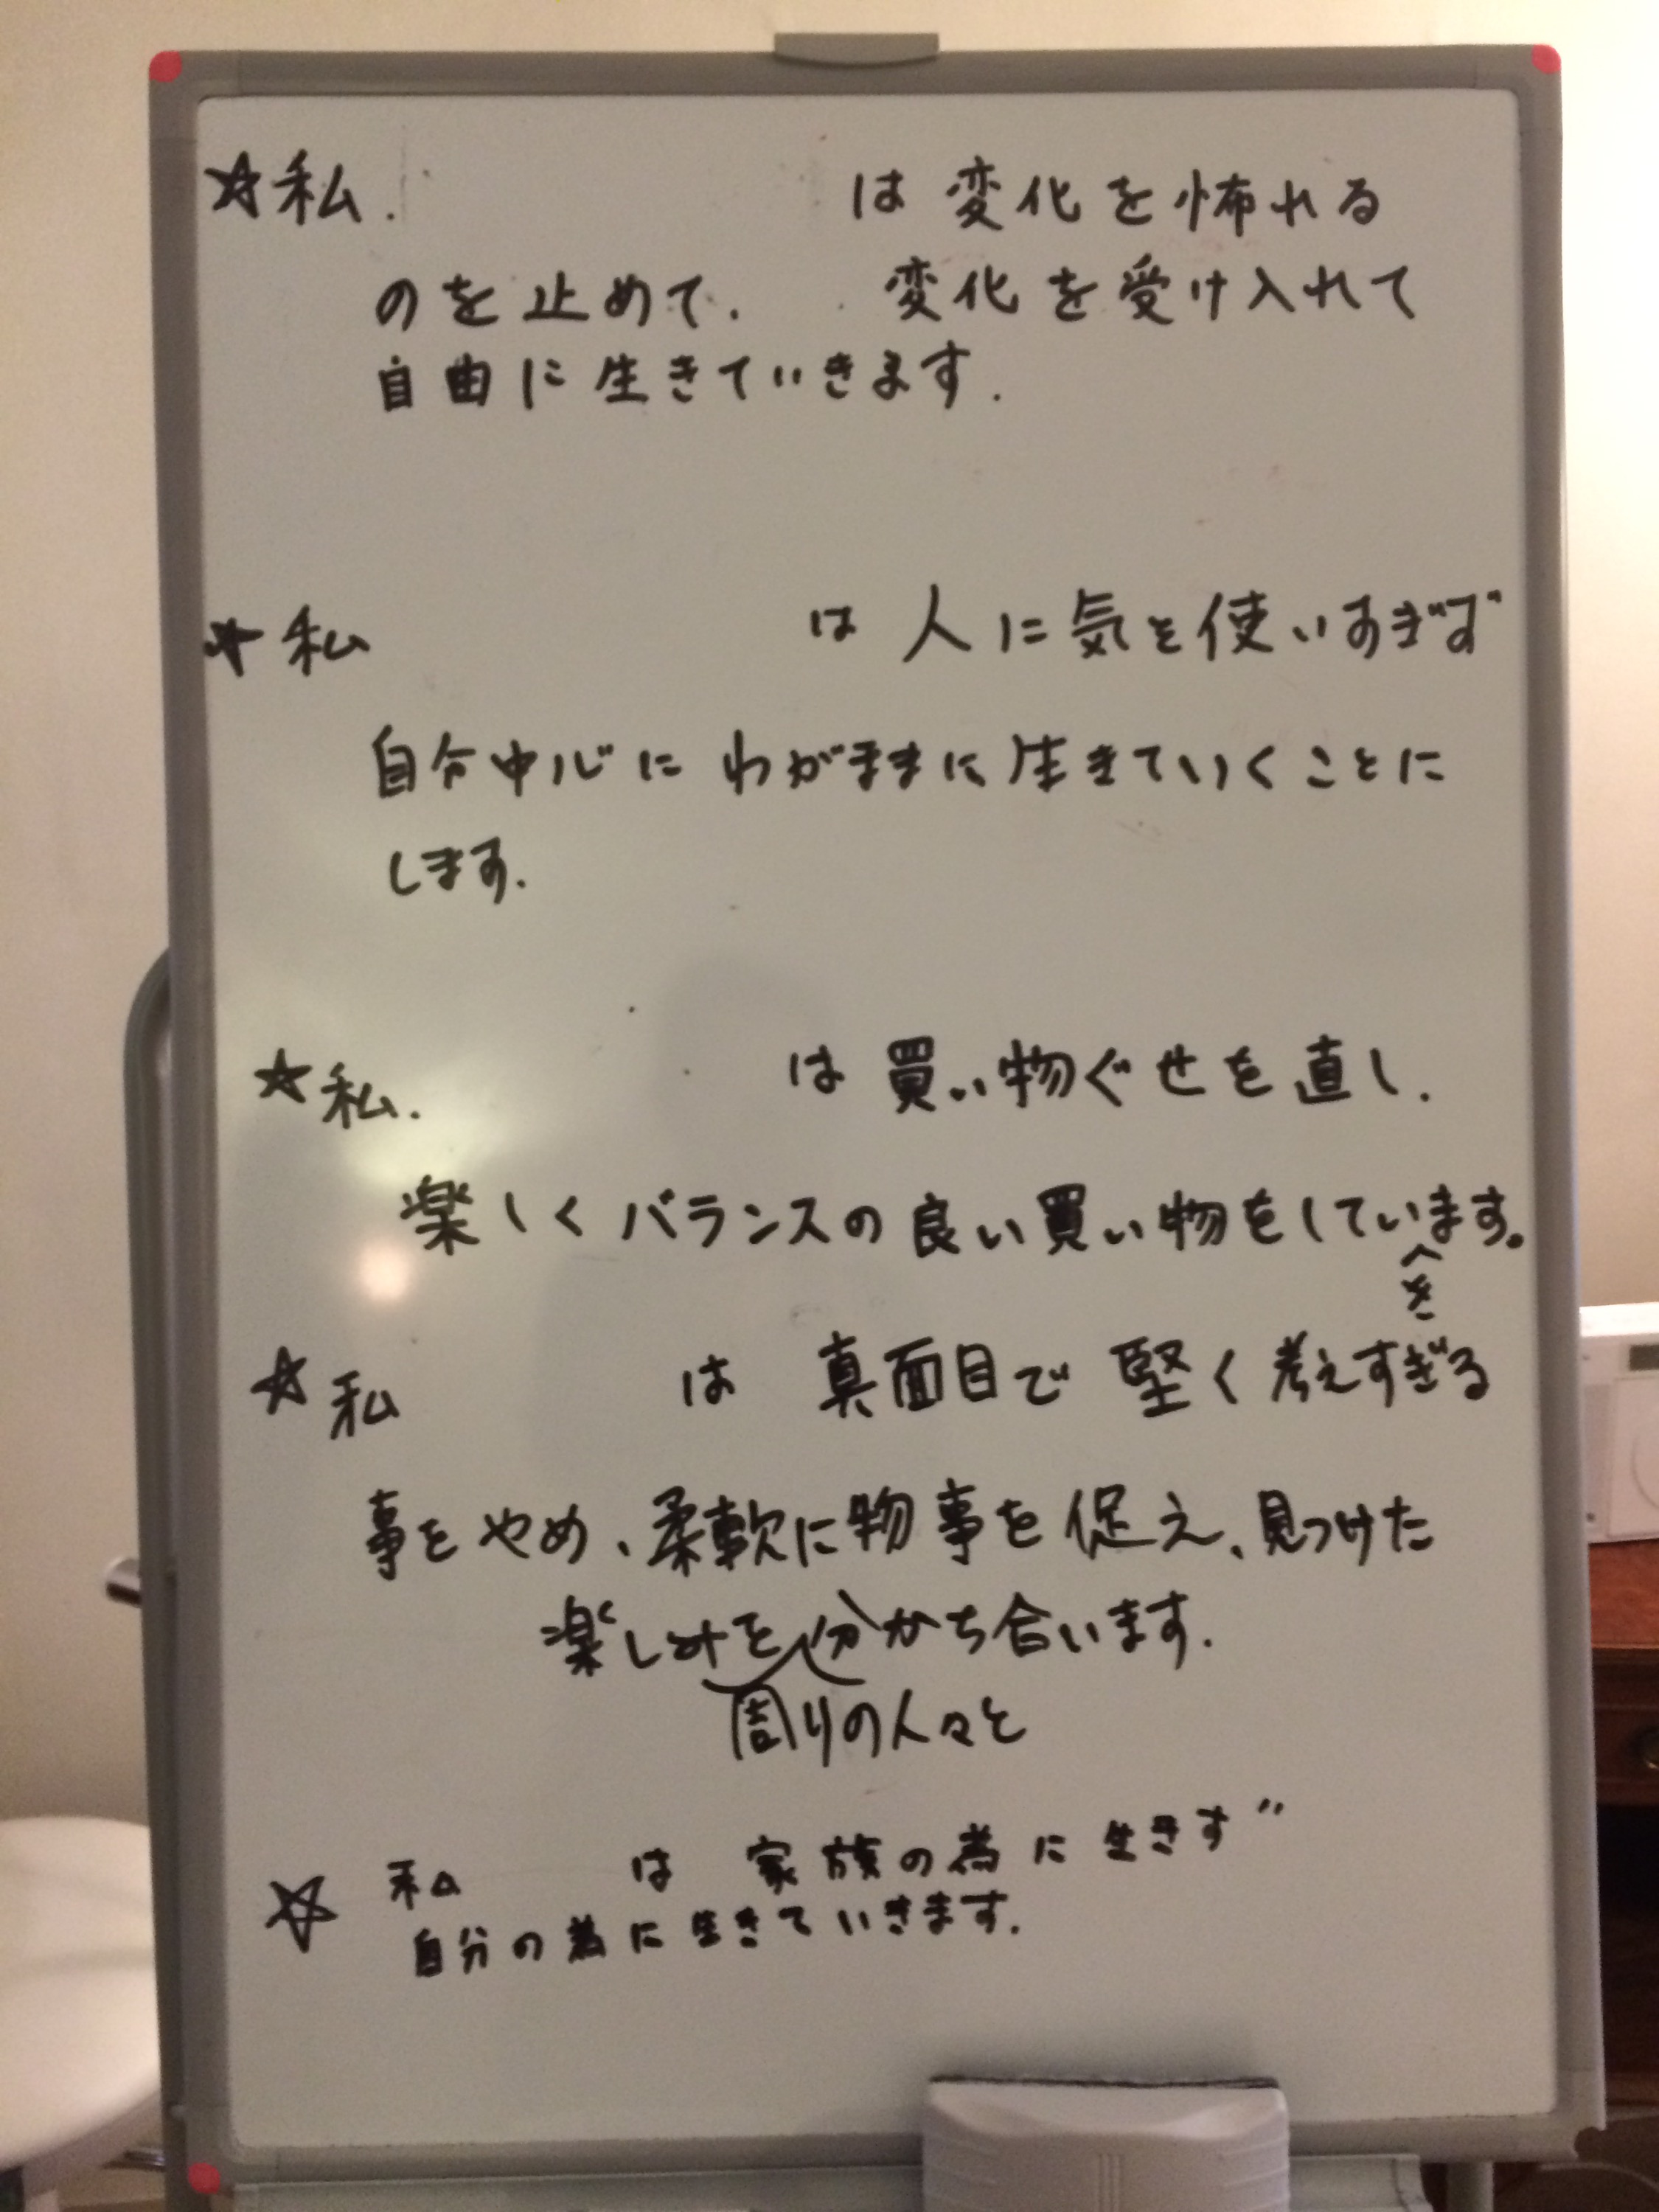 ☆私. は 変化を怖れる
のを止めて. 変化を受け入れて
自由に生きていきます.
☆私 は 人に気を使いすぎず
自分中心に わがままに生きていくことに
します.
☆私. は 買い物ぐせを直し.
楽しくバランスの良い買い物をしています。
き
☆私 は 真面目で 堅く考えすぎる
事をやめ、柔軟に物事を促え、見つけた
楽しみを分かち合います.
周りの人々と
☆私 は 家族の為に生きず
自分の為に生きていきます.